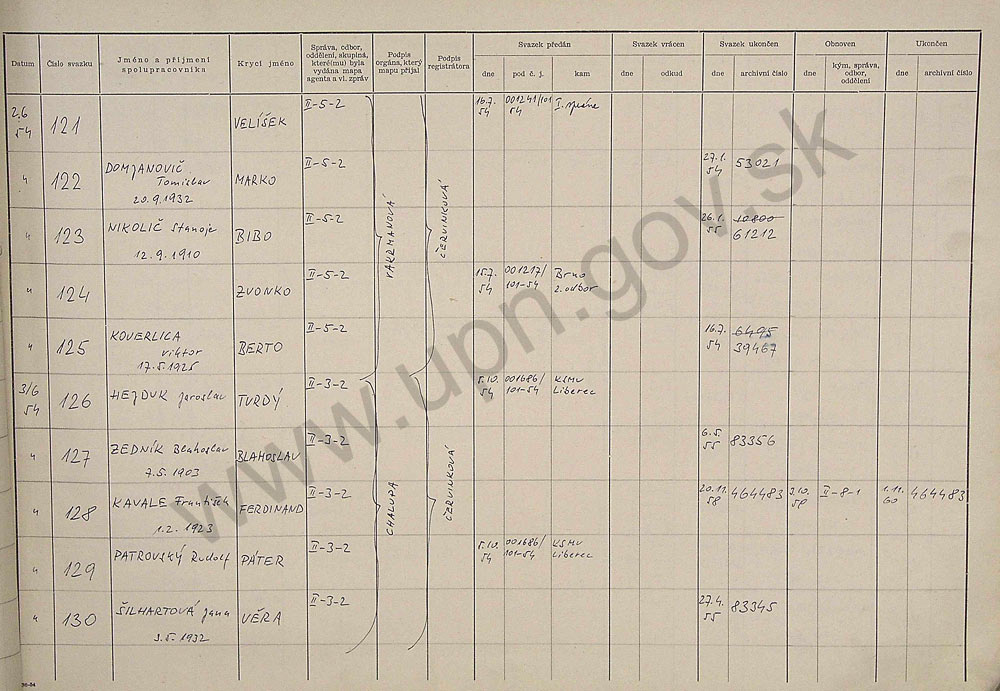 Datum
Číslo svazku
Jméno a příjmení
spolupracovníka
Krycí jméno
Správa, odbor,
oddělení, skupina,
které(mu) byla
vydána mapa
agenta a vl. zpráv
Podpis
orgána, který
mapu přijal
Podpis
registrátora
Svazek předán
dne
pod č. j.
kam
Svazek vrácen
dne
odkud
Svazek ukončen
dne
archivní číslo
Obnoven
dne
kým, správa,
odbor,
oddělení
Ukončen
dne
archivní číslo
2.6
54
121
VELÍŠEK
II-5-2
16.7.
54
001241/101
54
I. správa
" 122
DOMJANOVIČ
Tomislav
20.9.1932
MARKO
II-5-2
27.1.
54
53021
" 123
NIKOLIČ Stanoje
12.9.1910
BIBO
II-5-2
26.1.
55
10800
61212
" 124
ZVONKO
II-5-2
15.7.
54
001217/
101-54
Brno
2. odbor
" 125
KOVERLICA
Viktor
17.5.1925
BERTO
II-5-2
16.7.
54
6495
39467
ČERVINKOVÁ
3/6
54
126
HEJDUK Jaroslav
TVRDÝ
II-3-2
5.10.
54
001686/
101-54
KSMV
Liberec
" 127
ZEDNÍK Blahoslav
7.5.1903
BLAHOSLAV
II-3-2
6.5.
55
83356
" 128
KAVALE František
1.2.1923
FERDINAND
II-3-2
20.11.
58
464483
3.10.
59
II-8-1
1.11.
60
464483
CHALUPA
ČERVINKOVÁ
" 129
PATROVSKÝ Rudolf
PÁTER
II-3-2
5.10.
54
001686/
101-54
KSMV
Liberec
" 130
ŠILHARTOVÁ Jana
3.5.1932
VĚRA
II-3-2
27.4.
55
83345
www.upn.gov.sk